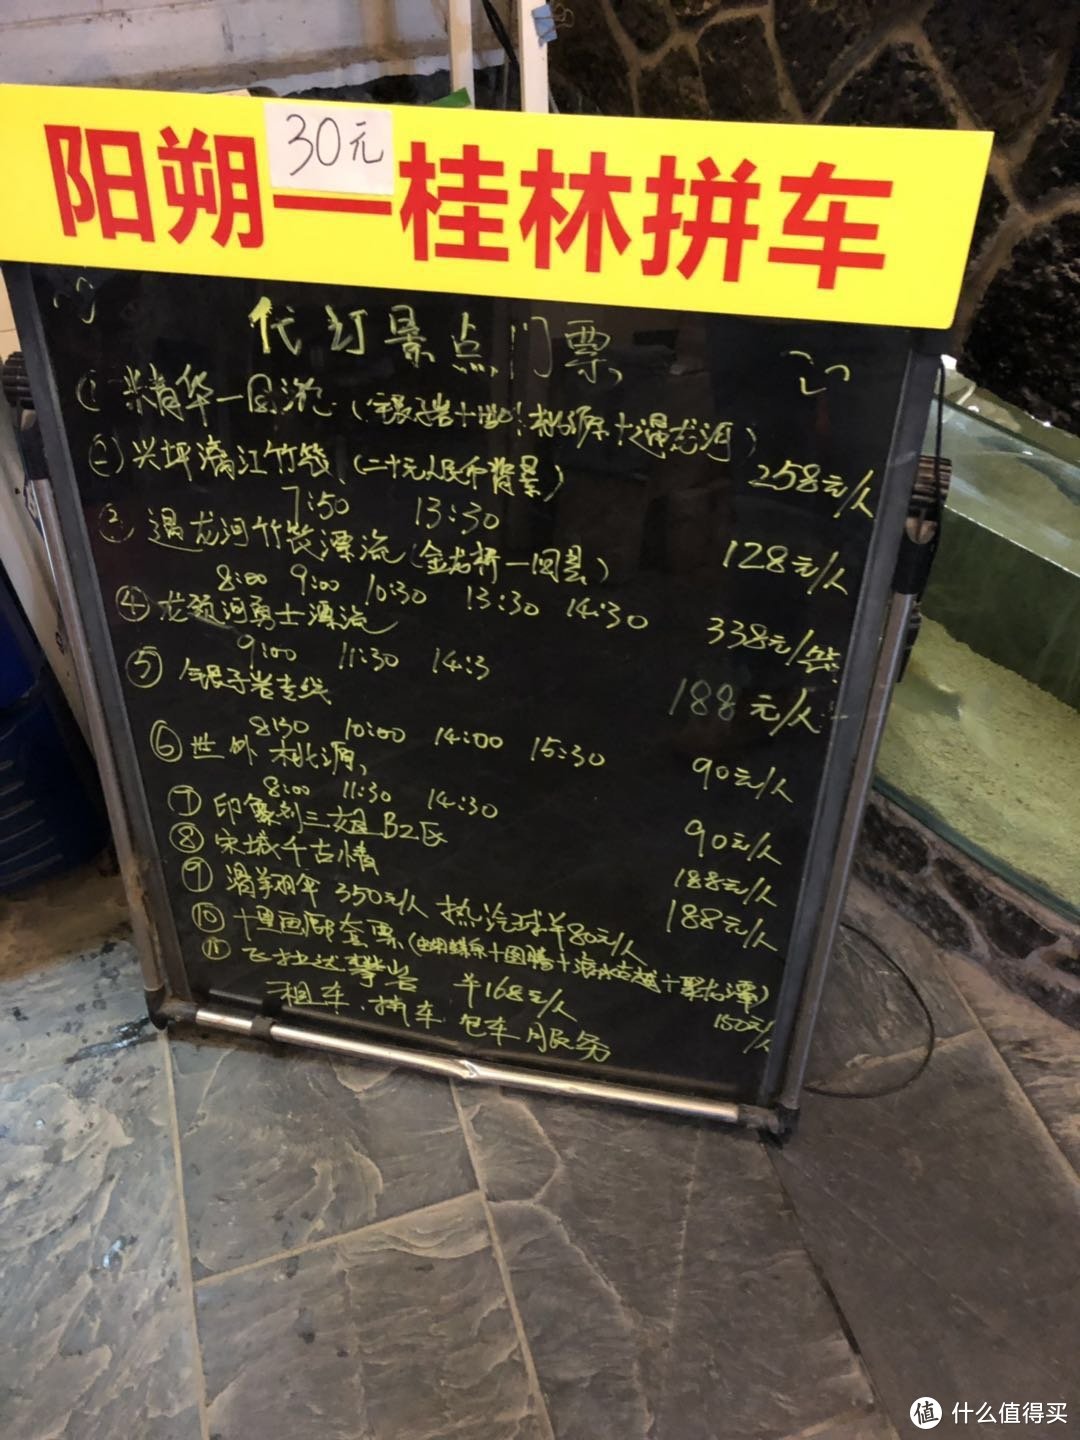 30元
阳朔—桂林拼车
代订景点门票
① 精华一日游 (银子岩+世外桃源+遇龙河) 258元/人
② 兴坪漓江竹筏 (二十元人民币背景) 128元/人
7:50 13:30
③ 遇龙河竹筏漂流 (金龙桥一旧县) 338元/筏
8:00 9:00 10:30 13:30 14:30
④ 龙颈河勇士漂流 188元/人
9:00 11:30 14:3
⑤ 银子岩专线 90元/人
8:30 10:00 14:00 15:30
⑥ 世外桃源 90元/人
8:00 11:30 14:30
⑦ 印象刘三姐B2区 188元/人
⑧ 宋城千古情 188元/人
⑨ 滑翔伞 350元/人 热汽球¥80元/人
⑩ 十里画廊套票 (蝴蝶泉+图腾+ +聚龙潭) 150元/人
⑪ 飞拉达攀岩 ¥168元/人
租车、拼车、包车服务
值 什么值得买